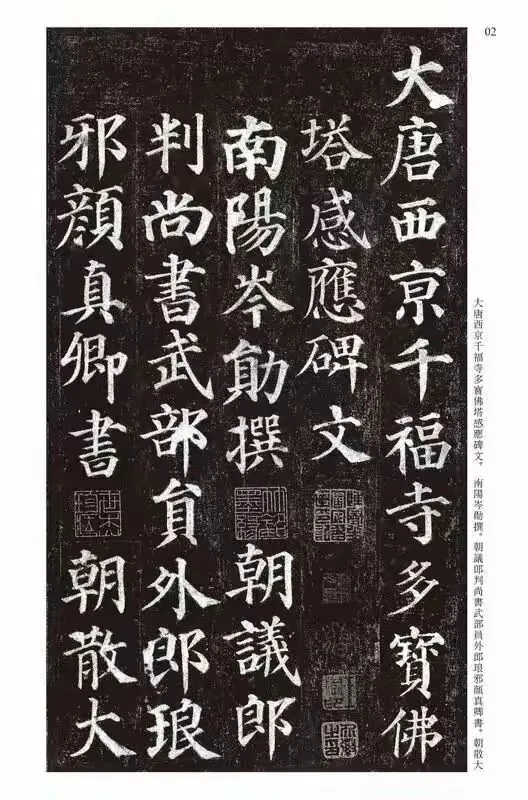 02
大唐西京千福寺多寶佛
塔感應碑文
南陽岑勛撰 朝議郎
判尚書武部員外郎琅
邪顏真卿書 朝散大
大唐西京千福寺多寶佛塔感應碑文。 南陽岑勛撰。朝議郎判尚書武部員外郎琅邪顏真卿書。朝散大